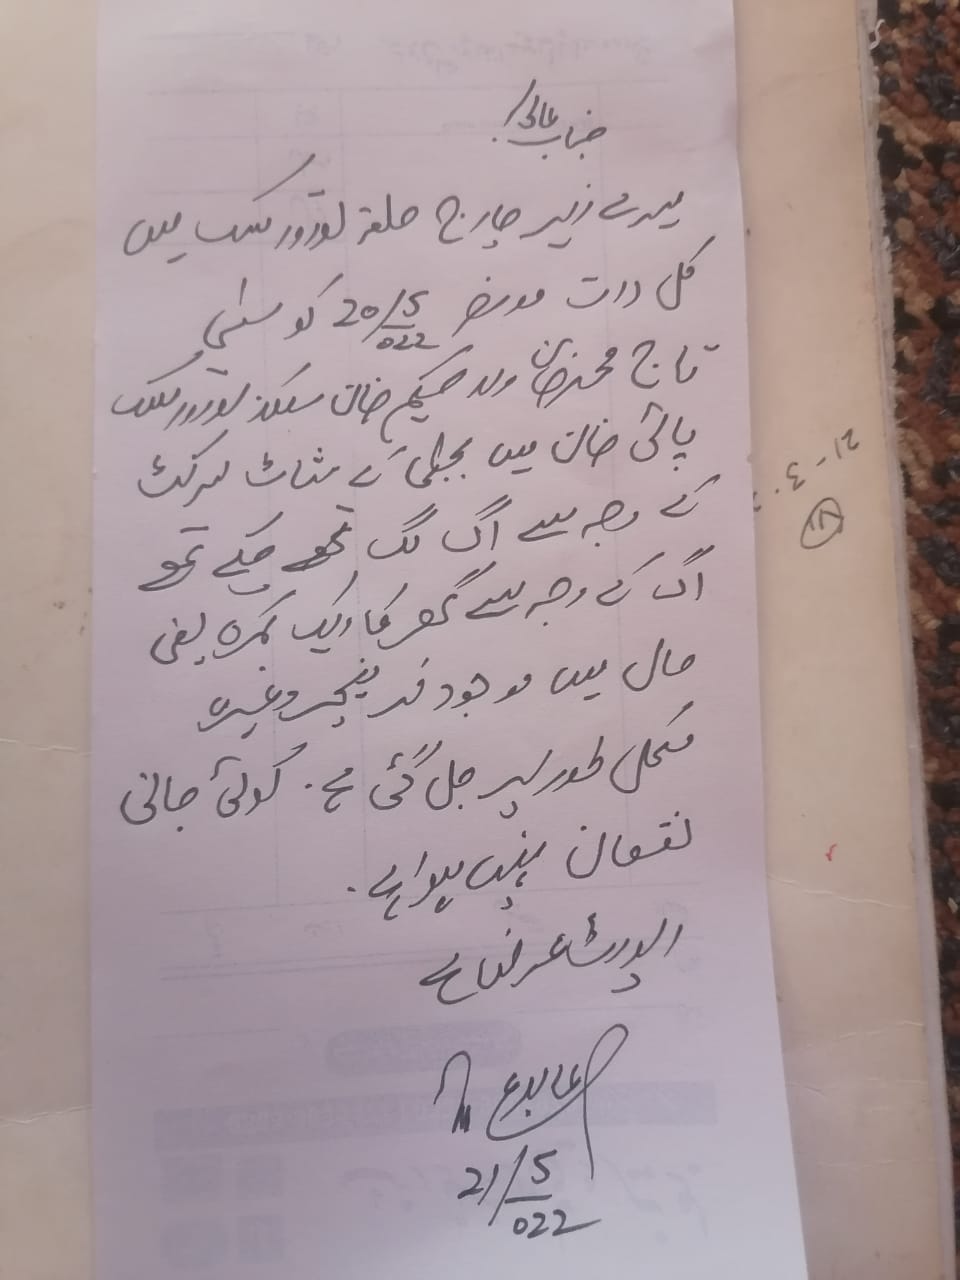 جناب عالی!
میرے زیر چارج حلقہ لوڑور کسب میں
کل رات مورخہ 20/5/022 کو مسمی
تاج محمد خان ولد حکیم خان سکنہ لوڑور کسب
پائی خان میں بجلی کے شاٹ سرکٹ
کے وجہ سے اگ لگ چکے تھے
اگ کے وجہ سے گھر کا ایک کمرہ یعنی
حال میں موجود فرنیچر وغیرہ
مکمل طور پر جل گئی ہے. کوئی جانی
نقصان نہیں ہوا ہے.
رپورٹ عرض ہے
21/5/022